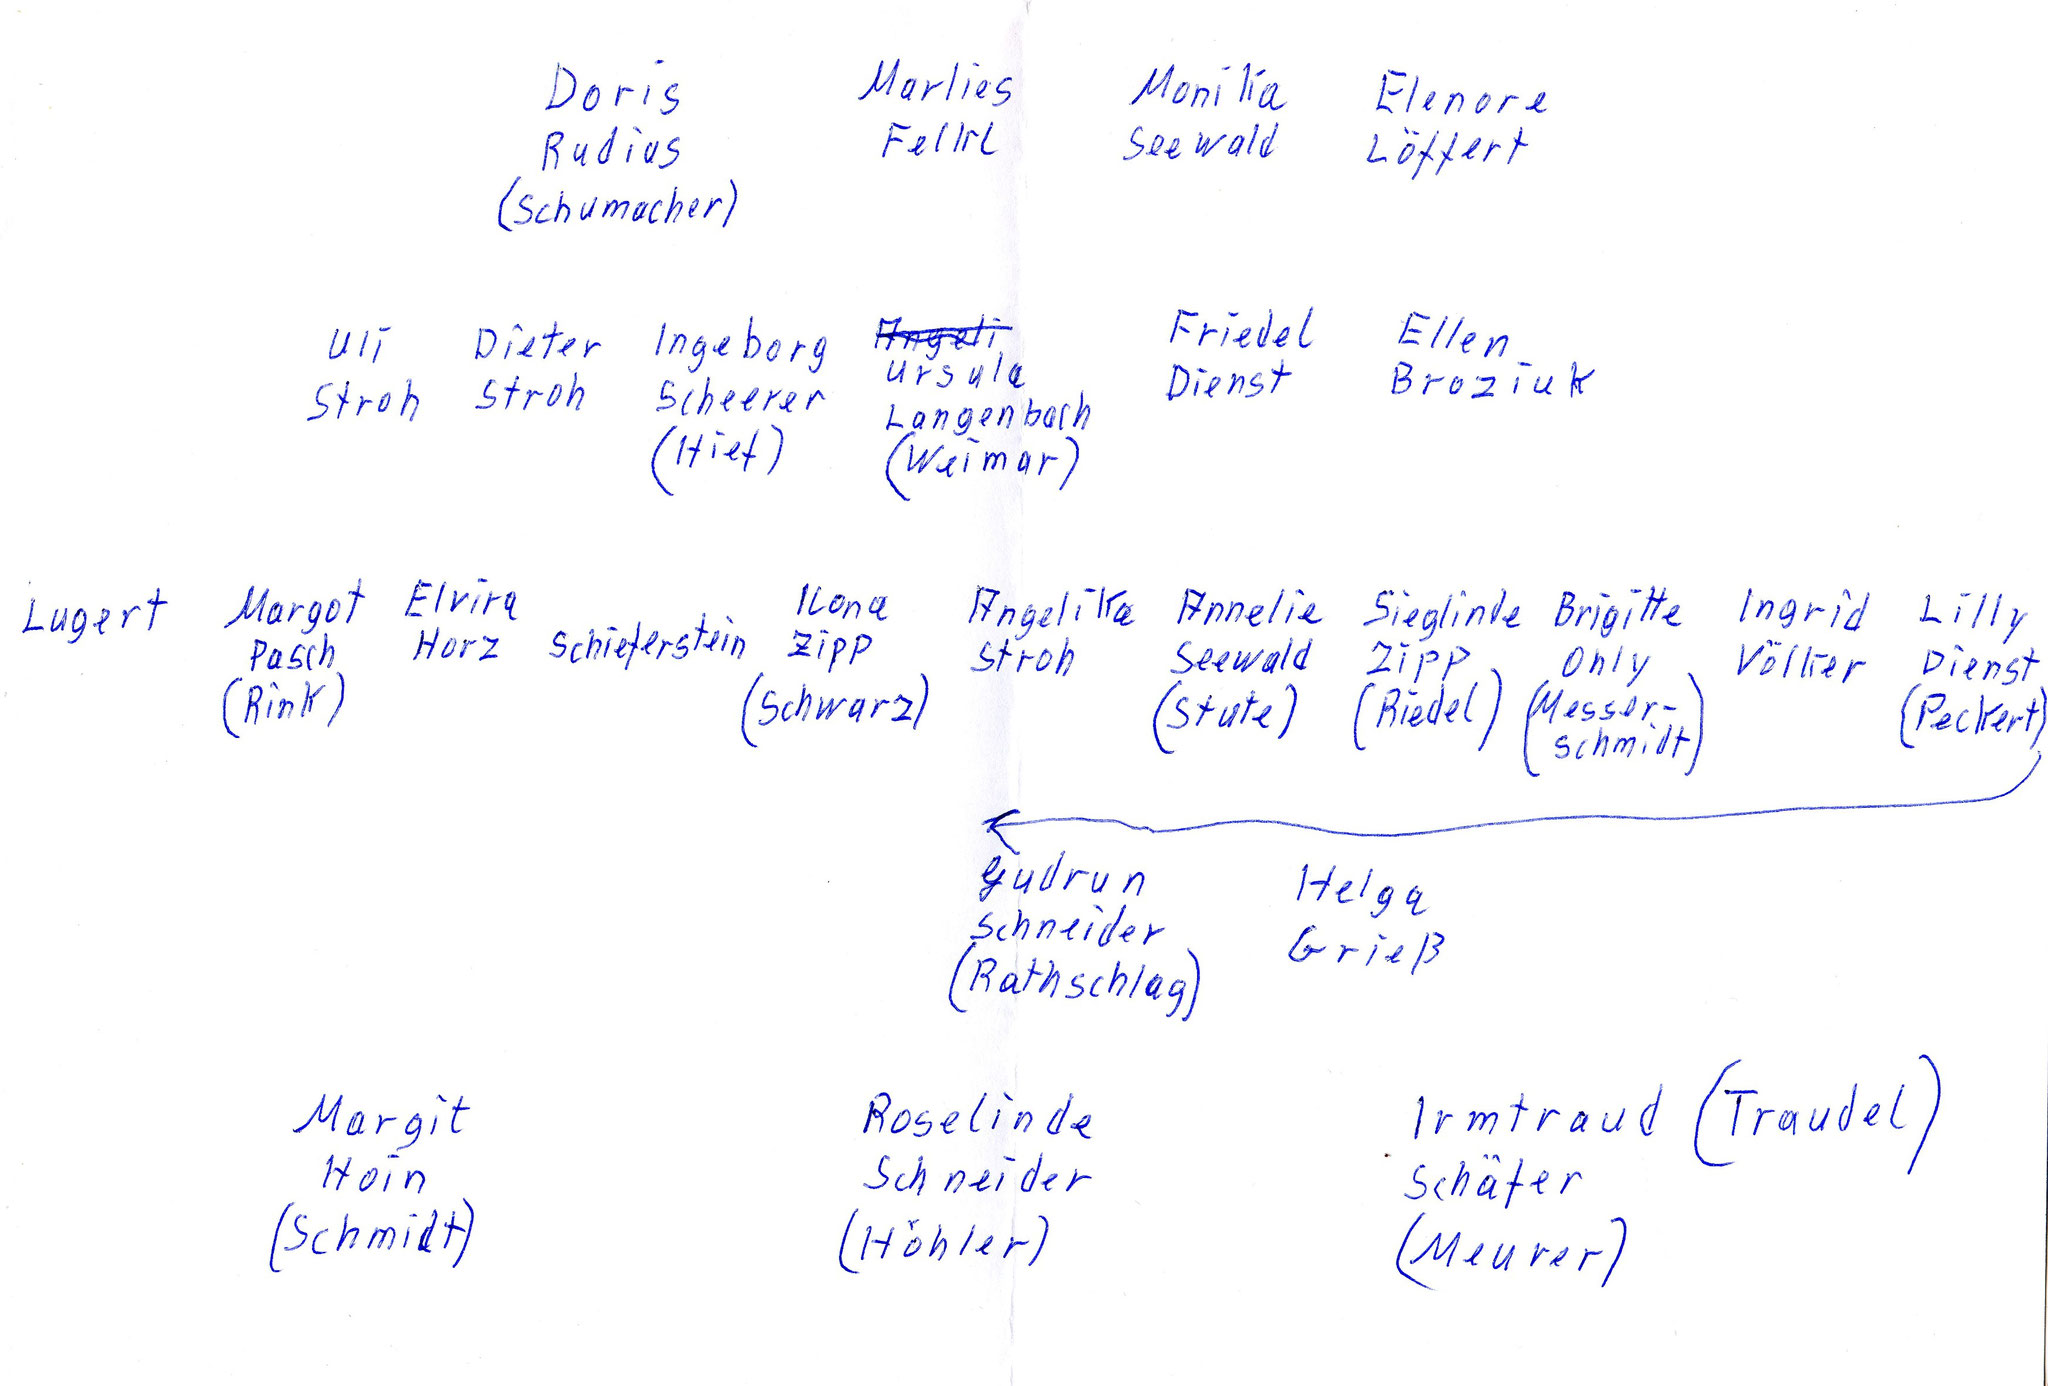 Doris Marlies Monika Elenore
Rudius Seewald Löffert
(Schumacher)
Uli Dieter Ingeborg Angeli Friedel Ellen
Ursula
Stroh Stroh Scheerer Langenbach Dienst Broziuk
(Hief) (Weimar)
Lugert Margot Elvira Ilona Angelika Annelie Sieglinde Brigitte Ingrid Lilly
Pasch Horz Schieferstein Zipp Stroh Seewald Zipp Ohly Völker Dienst
(Rink) (Schwarz) (Stute) (Riedel) (Messer- (Peckert)
schmidt)
Gudrun Helga
Schneider Grieß
(Rathschlag)
Margit Roselinde Irmtraud (Traudel)
Hoin Schneider Schäfer
(Schmidt) (Höhler) (Meurer)